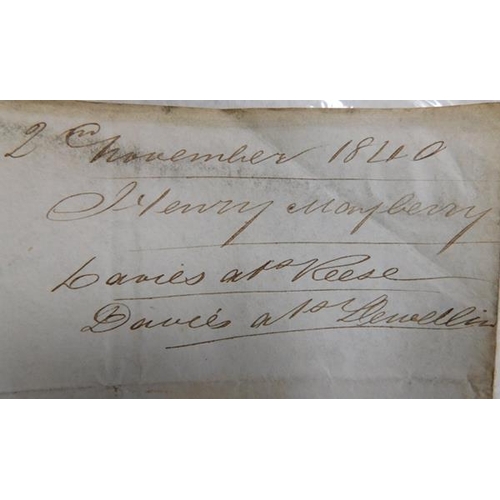 2nd November 1840
Henry Mayberry
Davies ats Reese
Davies ats Llewellin